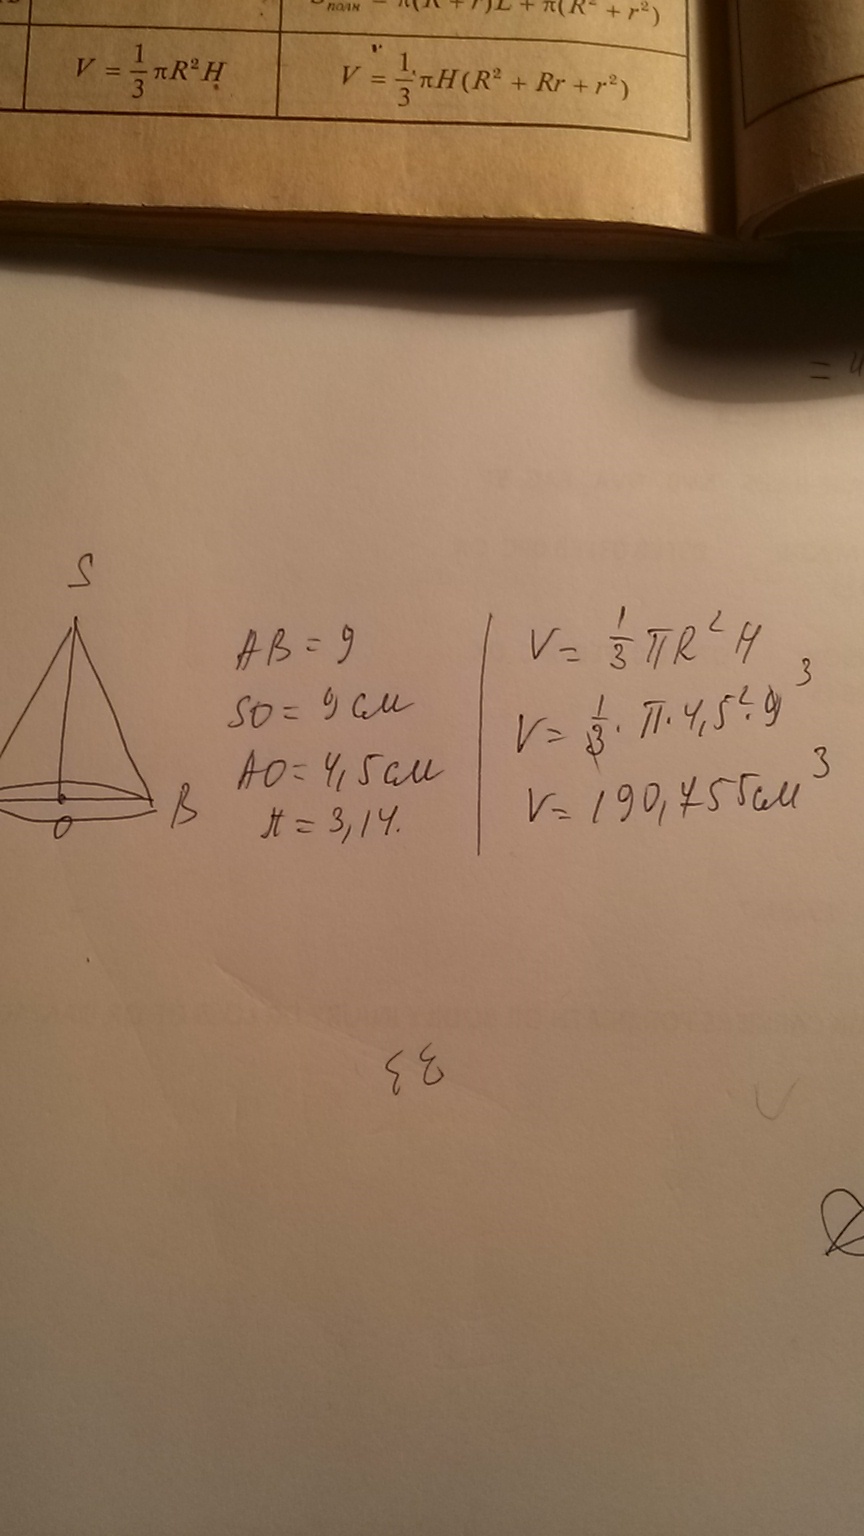 Sполн = π(R + r)L + π(R² + r²)
V = 1/3 πR²H
V = 1/3 πH(R² + Rr + r²)
S
AB = 9
SO = 9 см
AO = 4,5 см
π = 3,14.
B
O
V = 1/3 πR²H
V = 1/3 · π · 4,5² · 9 3
V = 190,755 см³